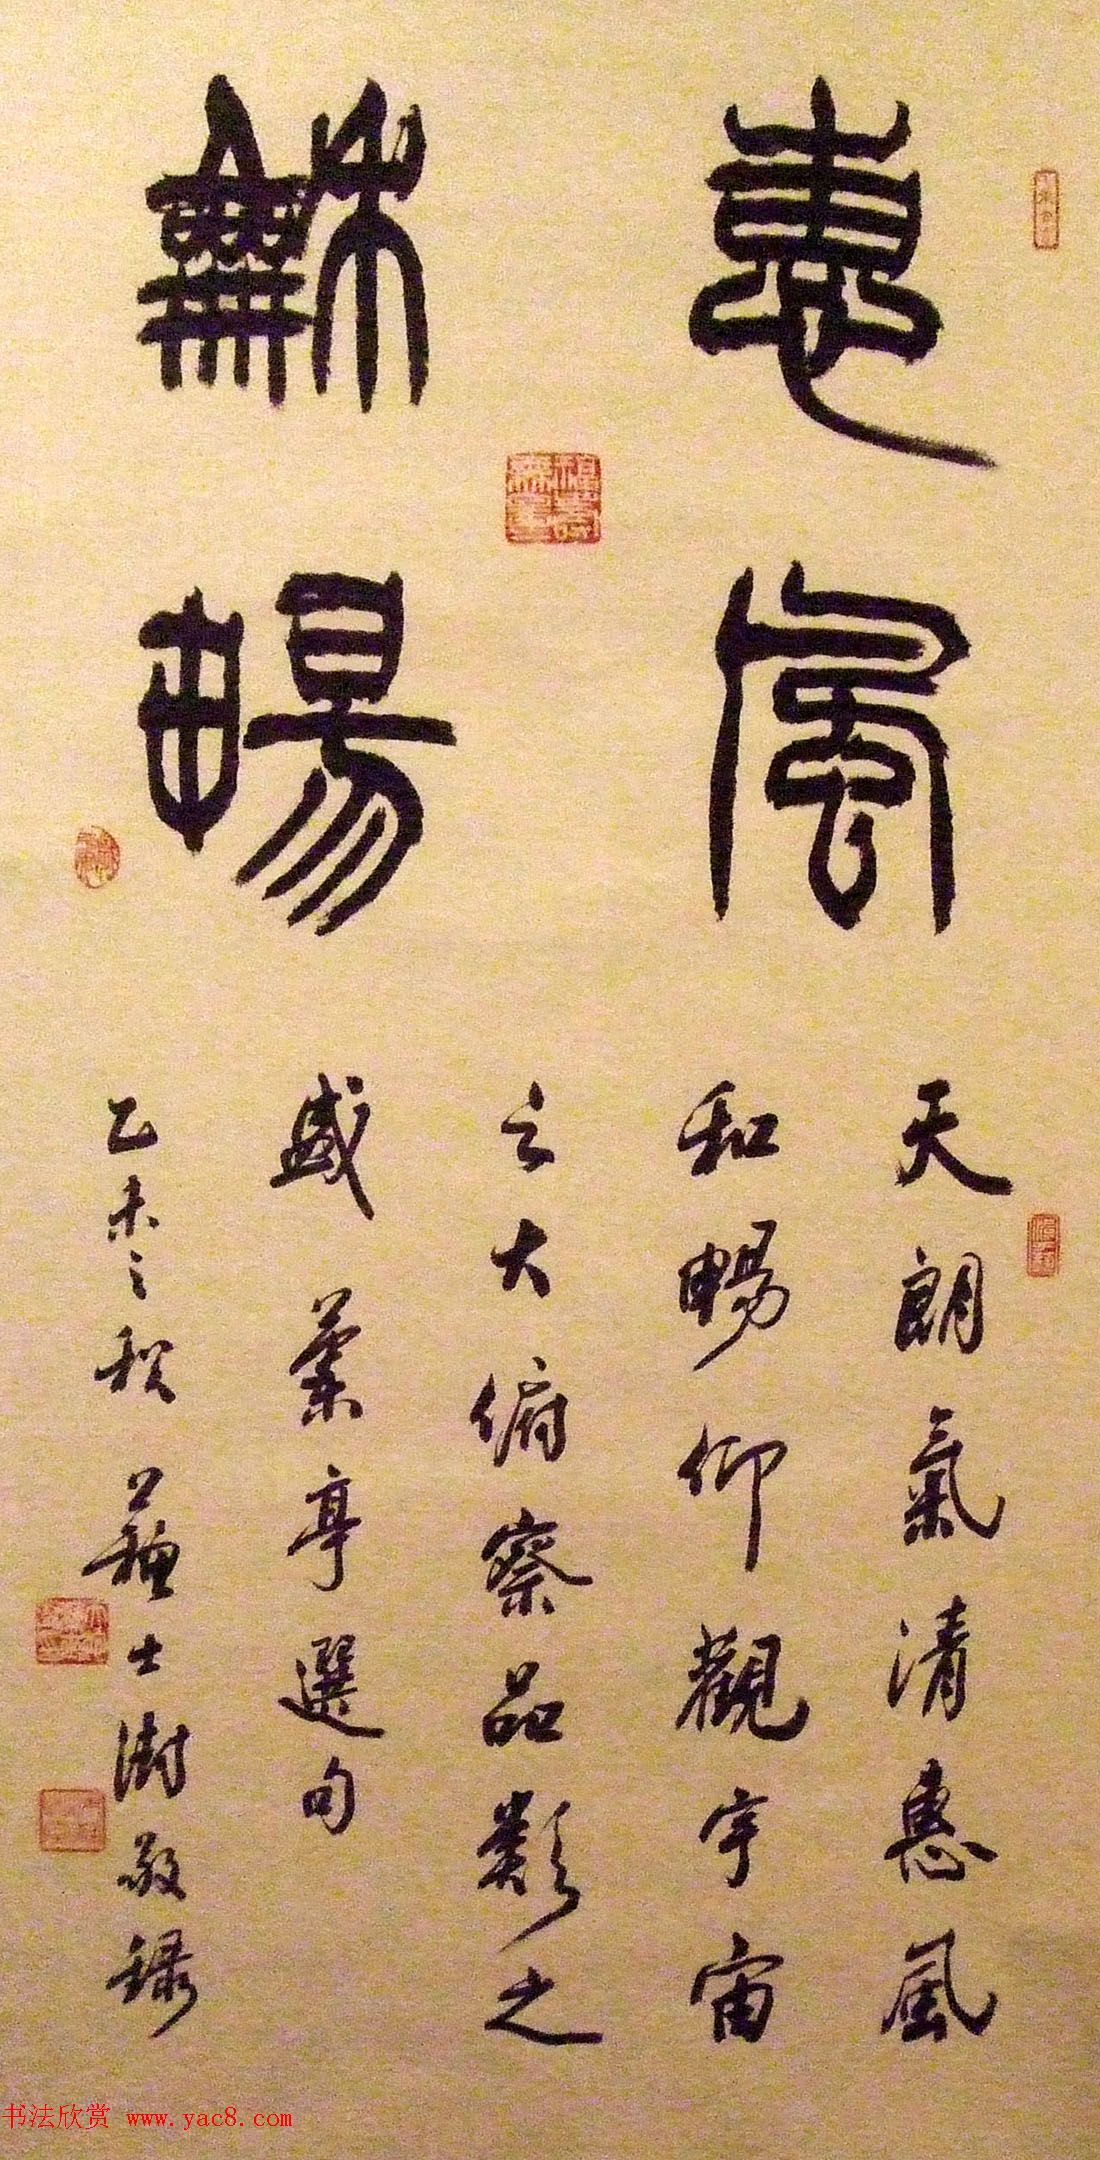 惠風
龢暢
天朗氣清惠風
和暢仰觀宇宙
之大俯察品類之
盛 蘭亭選句
乙未之秋 蘇士澍敬録
书法欣赏 www.yac8.com